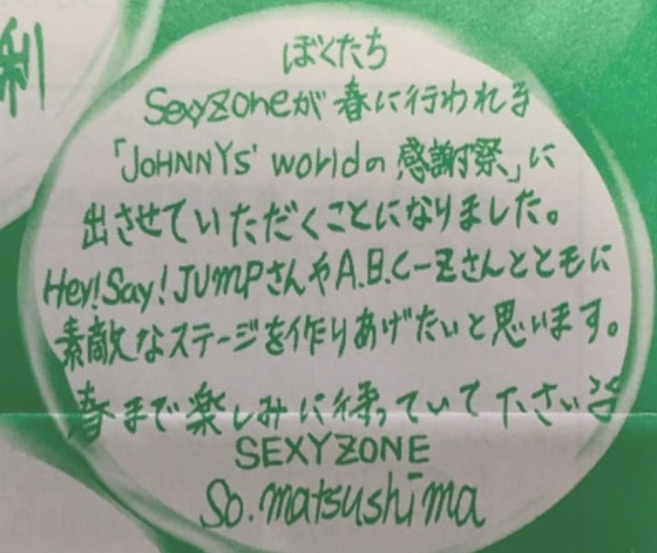 利
ぼくたち
SexyZoneが春に行われる
「JOHNNYS' worldの感謝祭」に
出させていただくことになりました。
Hey!Say!JUMPさんやA.B.C-Zさんとともに
素敵なステージを作りあげたいと思います。
春まで楽しみに待っていて下さい
SEXYZONE
So.matsushima